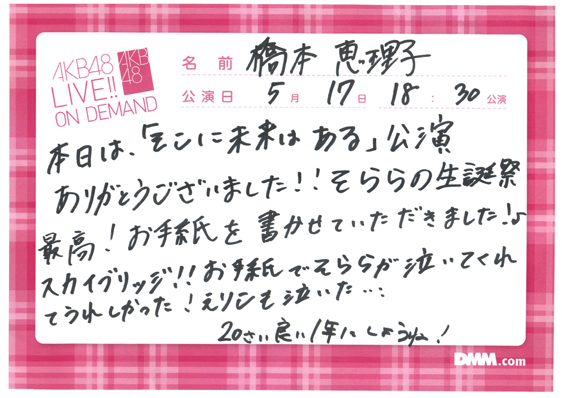 AKB48
LIVE!!
ON DEMAND
AKB
48
名前 橋本 恵理子
公演日 5月 17日 18:30公演
本日は、「そこに未来はある」公演
ありがとうございました!!そららの生誕祭
最高!お手紙を書かせていただきました!♪
スカイブリッジ!!お手紙でそららが泣いてくれ
てうれしかった!えりこも泣いた…
20さい良い1年にしようね!
DMM.com